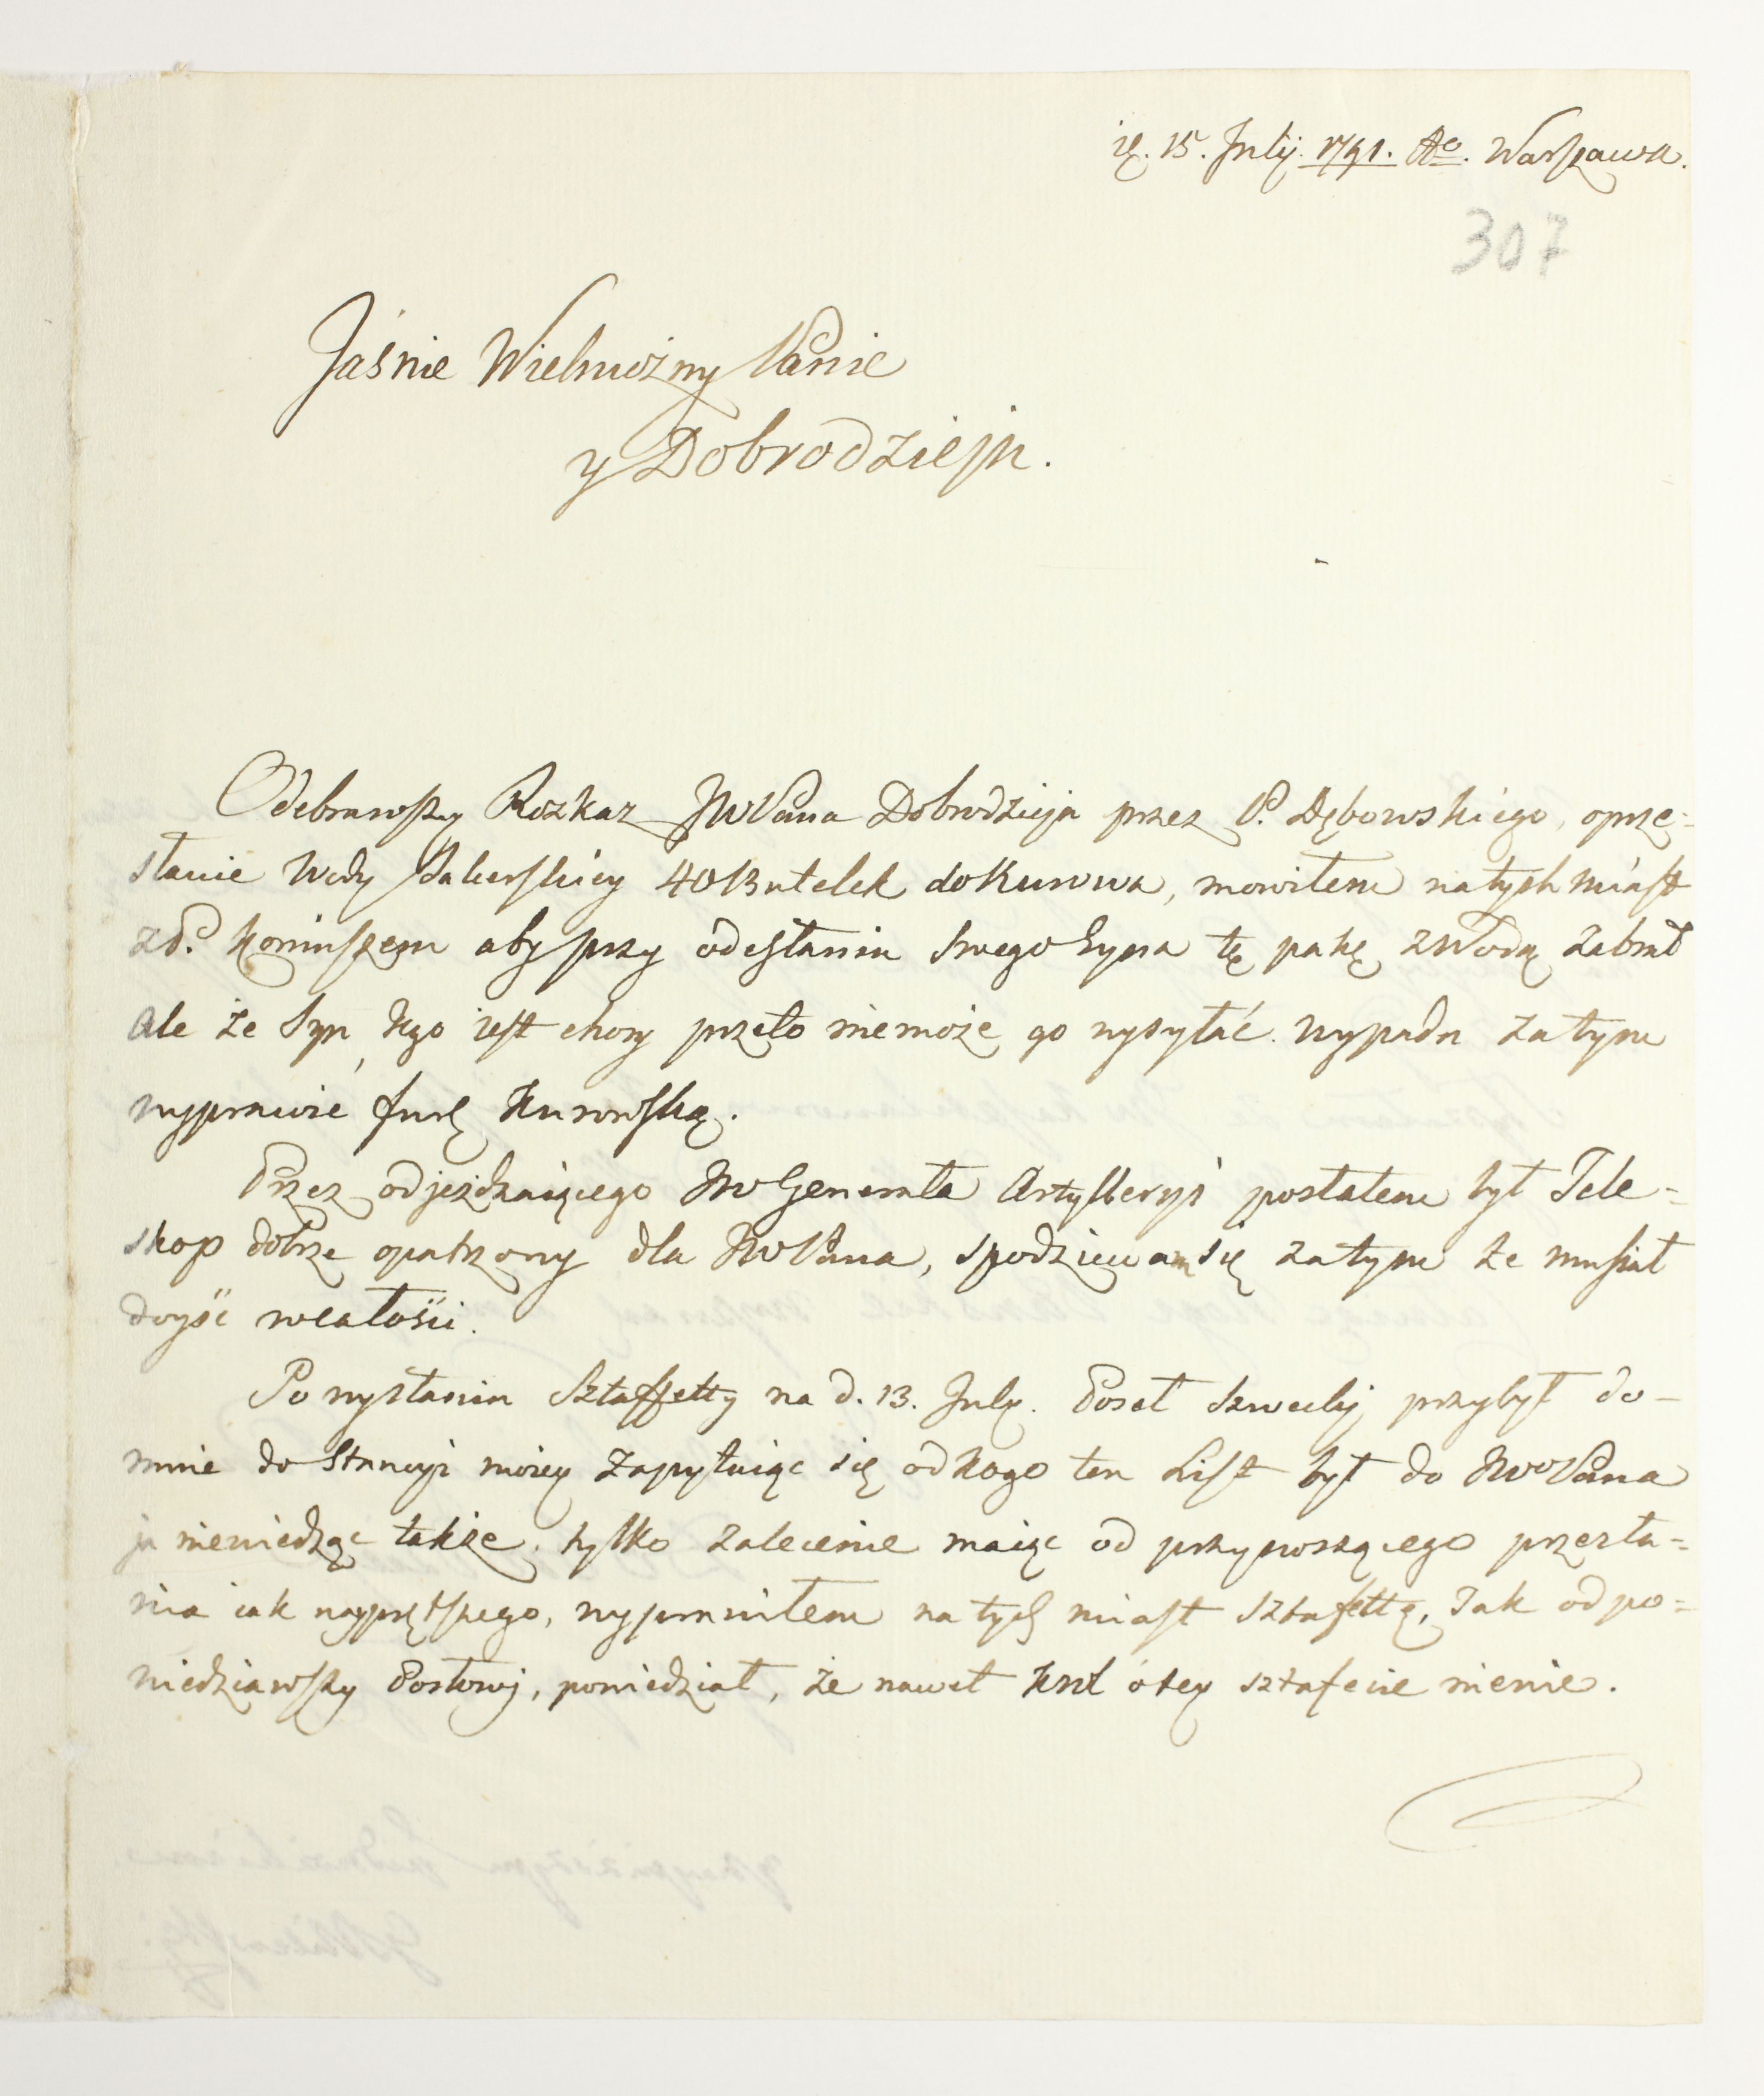 15. Julij. 1791. Ao. Warszawa.
307
Jaśnie Wielmożny Panie
y Dobrodzieju.
Odebrawszy Rozkaz JWPana Dobrodzieja przez P. Dębowskiego, oprze-
słanie Wody Salcerskiey 40 Butelek do Kurowa, mowiłem natychmiast
z P. Koniuszem aby przy odesłaniu Swego Syna tę pakę z Wodą zabrał
ale że Syn Jego iest chory przeto niemoże go wysyłać. wypada zatym
wyprawić furę Kurowską.
Przez odjeżdzaiącego JWGenerała Artylleryi posłałem był Tele-
skop dobrze opatrzony dla JWPana, spodziewam się zatym że musiał
doyść wcałości.
Po wysłaniu Sztaffetty na d. 13. July. Poseł Szwecki przybył do-
mnie do Stancyi moiey zapytuiąc się od kogo ten List był do JWPana
ja niewiedząc także, tylko zalecenie maiąc od przynoszącego przesła-
nia iak nayprętszego, wyprawiłem natychmiast sztafettę, Jak odpo-
wiedziawszy Posłowi, powiedział, że nawet Krol o tey sztafecie niewie.